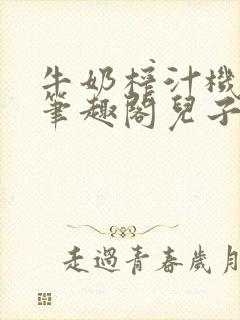 牛奶榨汁機
筆趣閣兒子
走過青春歲月